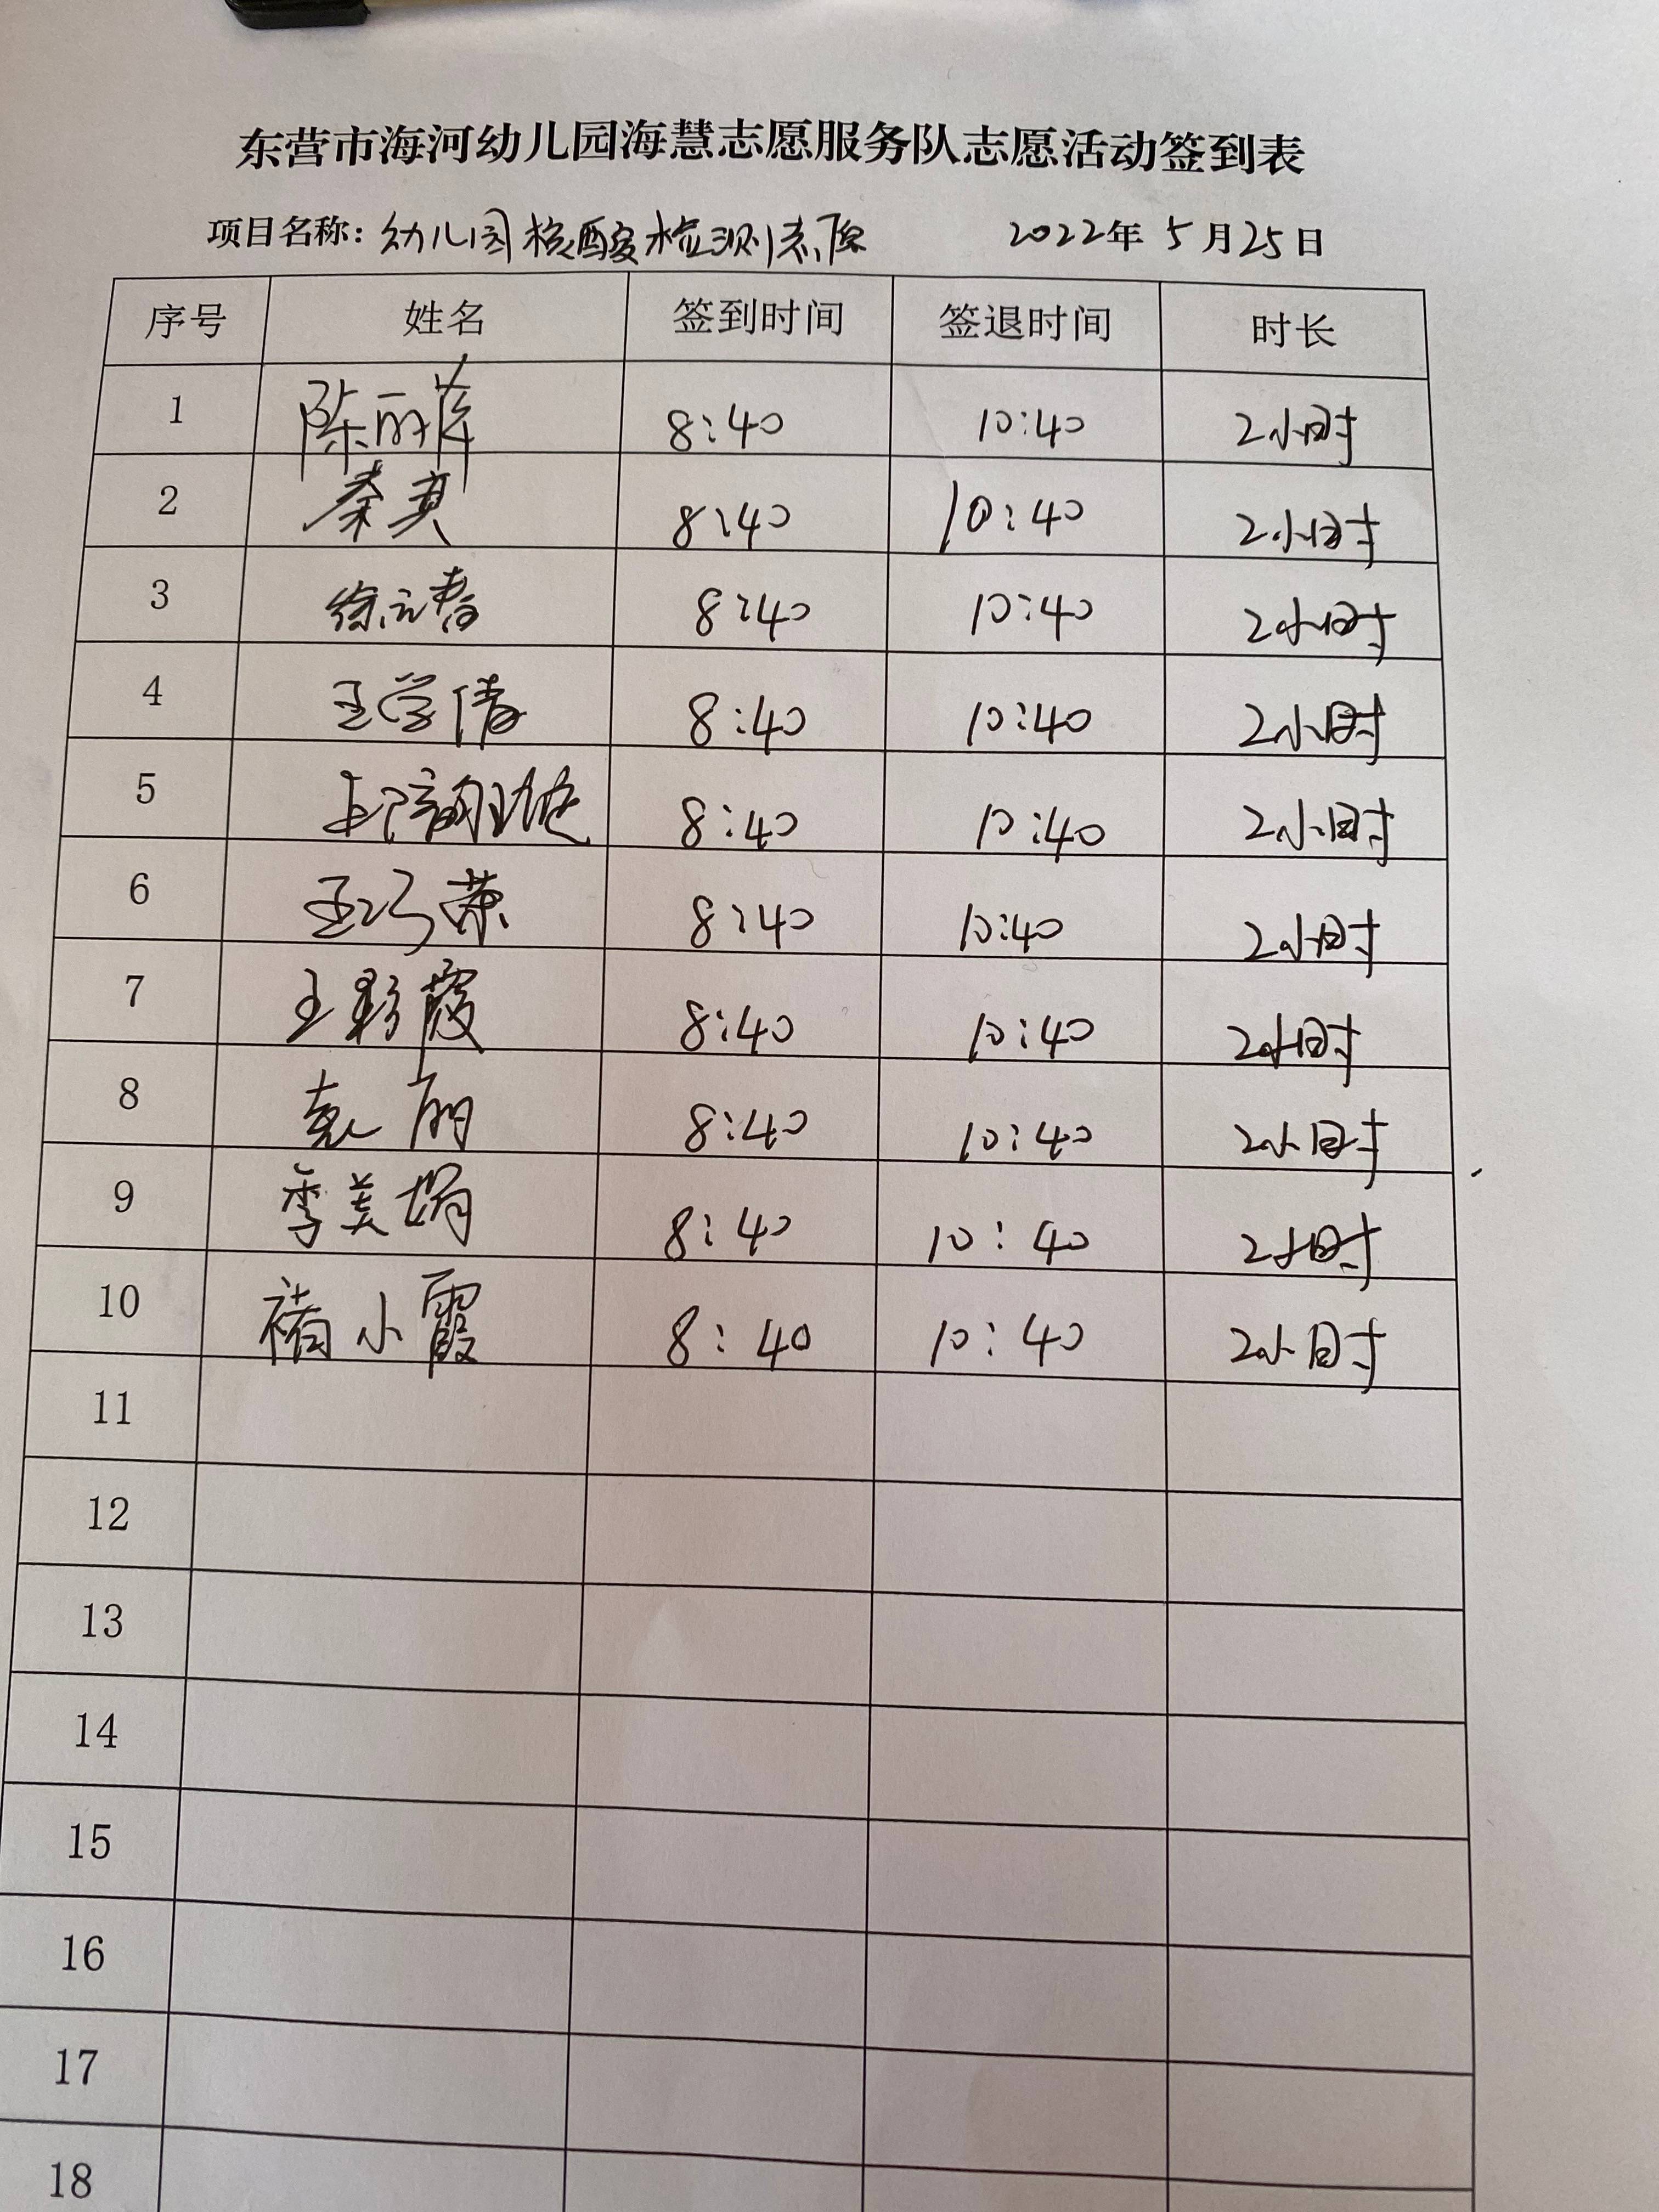 东营市海河幼儿园海慧志愿服务队志愿活动签到表
项目名称：幼儿园核酸检测志愿 2022年 5月25日
序号 姓名 签到时间 签退时间 时长
1 陈丽萍 8:40 10:40 2小时
2 秦真 8:40 10:40 2小时
3 徐元春 8:40 10:40 2小时
4 王学倩 8:40 10:40 2小时
5 8:40 10:40 2小时
6 王巧荣 8:40 10:40 2小时
7 王彩霞 8:40 10:40 2小时
8 袁丽 8:40 10:40 2小时
9 季美娟 8:40 10:40 2小时
10 褚小霞 8:40 10:40 2小时
11
12
13
14
15
16
17
18